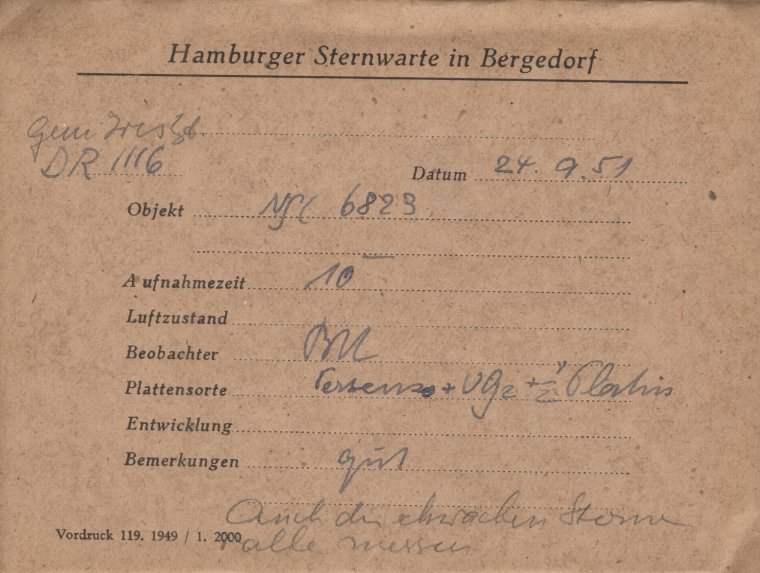 Hamburger Sternwarte in Bergedorf
DR 1116
Datum 24. 9. 51
Objekt NGC 6823
Aufnahmezeit 10
Luftzustand
Beobachter
Plattensorte + UG2 +
Entwicklung
Bemerkungen gut
Auch die schwachen Sterne
alle messen
Vordruck 119. 1949 / 1. 2000